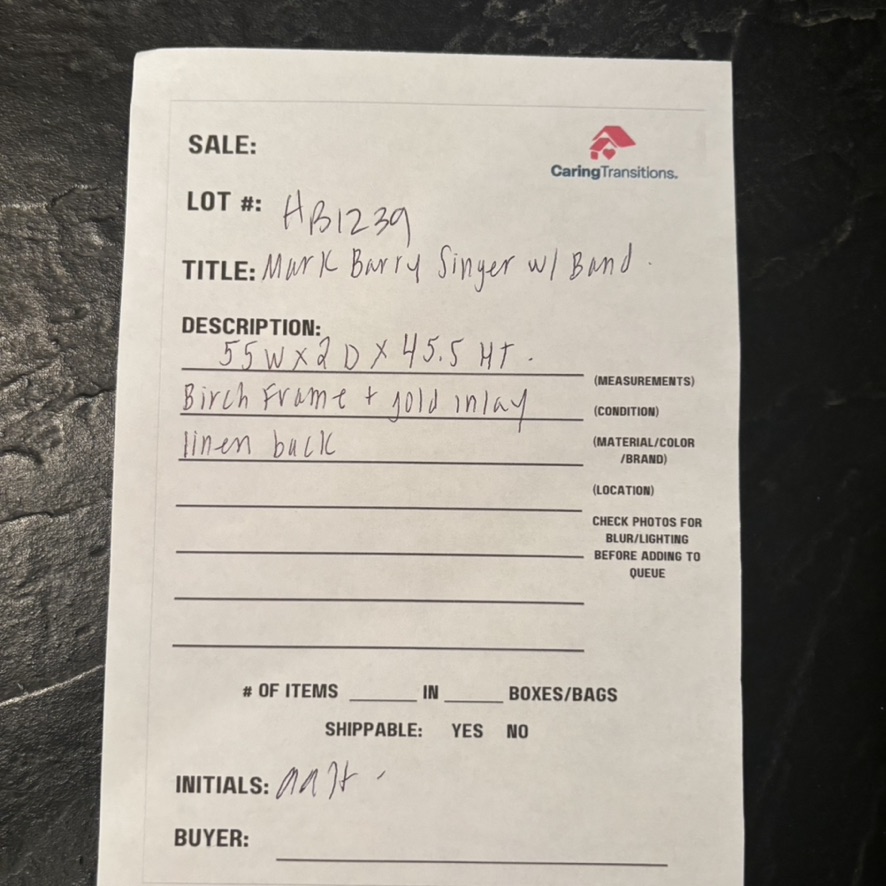 SALE:
CaringTransitions.
LOT #: HB1239
TITLE: Mark Barry Singer w/ Band.
DESCRIPTION:
55W x 2 D x 45.5 HT.
(MEASUREMENTS)
Birch Frame + gold inlay
(CONDITION)
linen back
(MATERIAL/COLOR
/BRAND)
(LOCATION)
CHECK PHOTOS FOR
BLUR/LIGHTING
BEFORE ADDING TO
QUEUE
# OF ITEMS ______ IN ______ BOXES/BAGS
SHIPPABLE: YES NO
INITIALS:
BUYER: